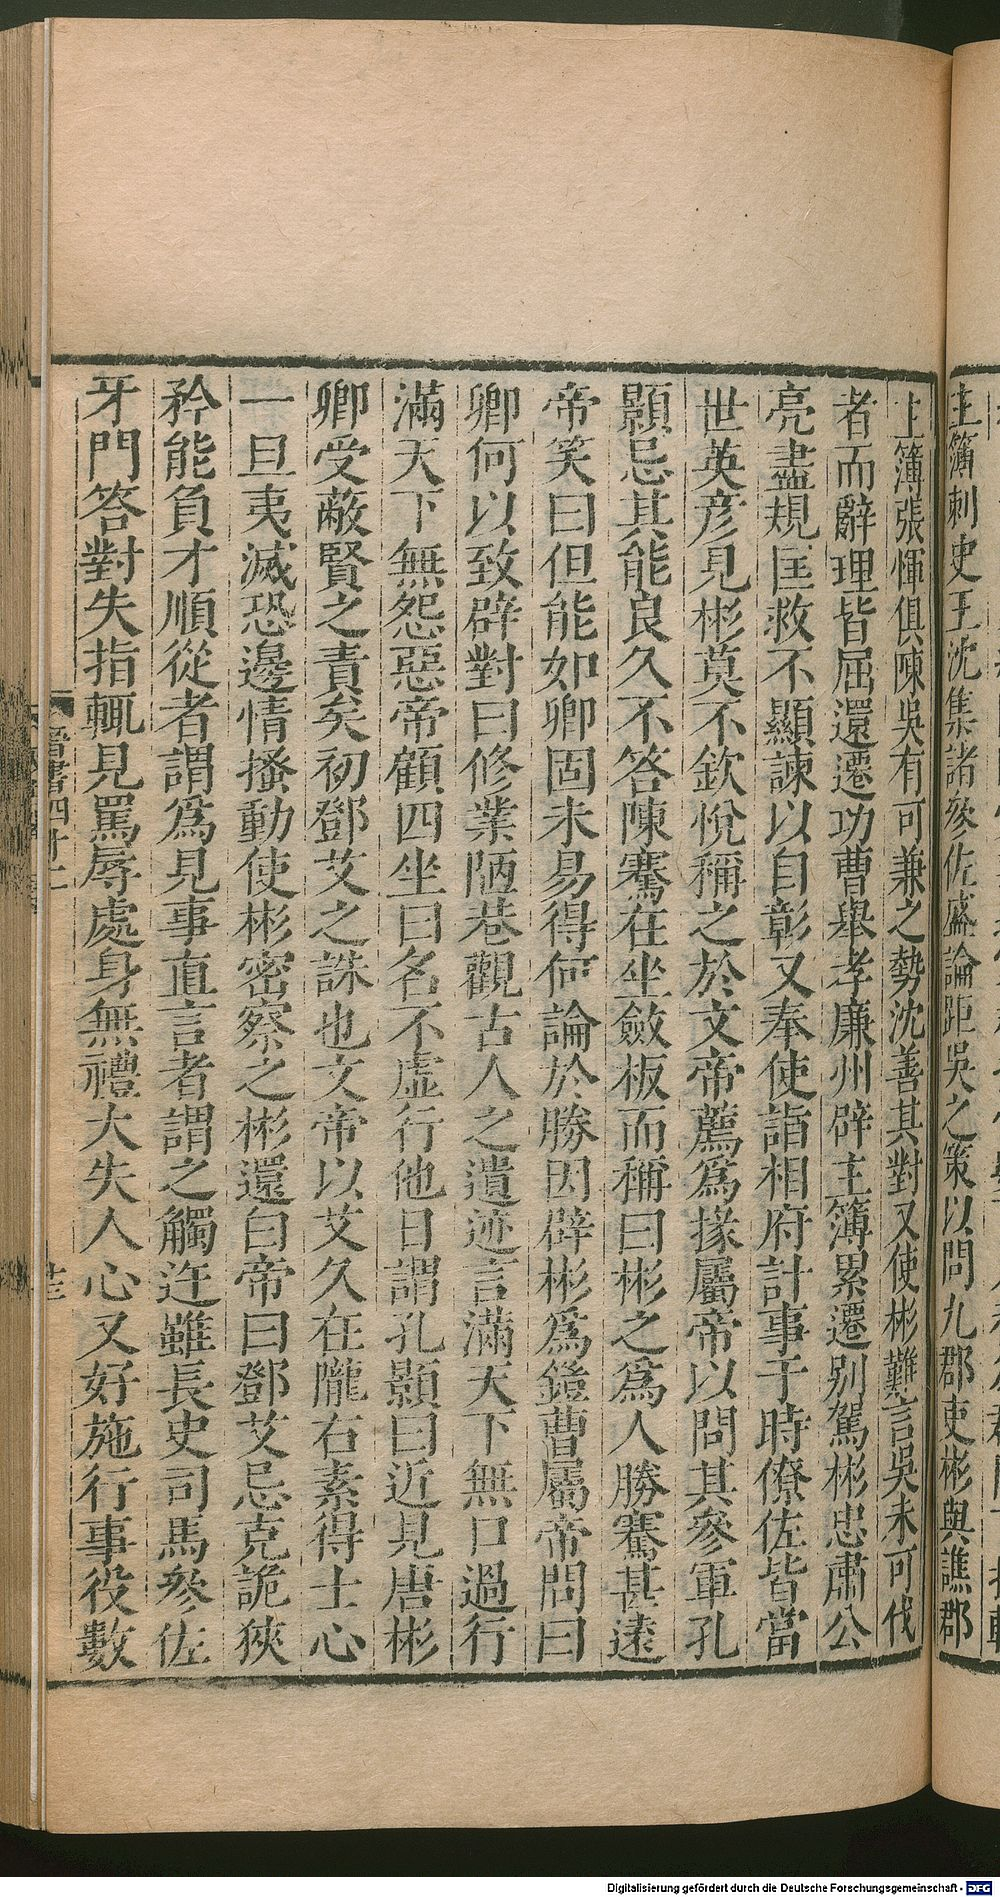 主簿刺史王沈集諸參佐盛論距吳之策以問九郡吏彬與譙郡
主簿張惲俱陳吳有可兼之勢沈善其對又使彬難言吳未可伐
者而辭理皆屈還遷功曹舉孝廉州辟主簿累遷别駕彬忠肅公
亮盡規匡救不顯諫以自彰又奉使詣相府計事于時僚佐皆當
世英彦見彬莫不欽悅稱之於文帝薦爲掾屬帝以問其參軍孔
顥忌其能良久不答陳騫在坐斂板而稱曰彬之爲人勝騫甚遠
帝笑曰但能如卿固未易得何論於勝因辟彬爲鎧曹屬帝問曰
卿何以致辟對曰修業陋巷觀古人之遺迹言滿天下無口過行
滿天下無怨惡帝顧四坐曰名不虛行他日謂孔顥曰近見唐彬
卿受蔽賢之責矣初鄧艾之誅也文帝以艾久在隴右素得士心
一旦夷滅恐邊情搔動使彬密察之彬還白帝曰鄧艾忌克詭狹
矜能負才順從者謂爲見事直言者謂之觸迕雖長史司馬參佐
牙門答對失指輒見罵辱處身無禮大失人心又好施行事役數
晉書四十二
Digitalisierung gefördert durch die Deutsche Forschungsgemeinschaft - DFG